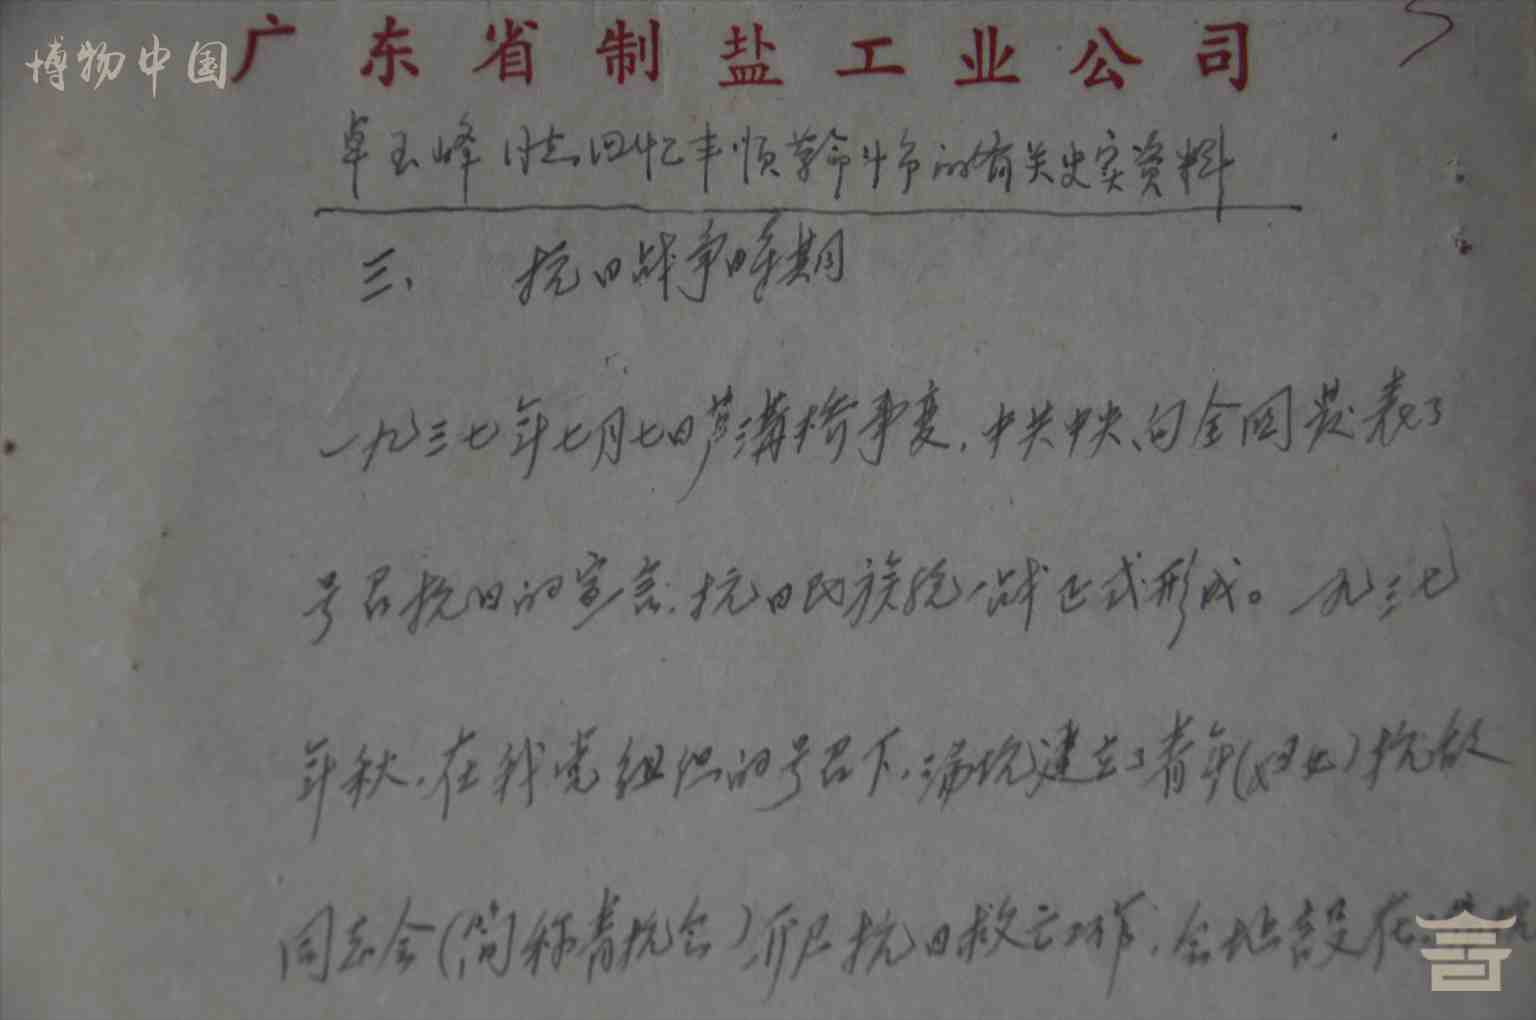 博物中国
广东省制盐工业公司
卓玉峰同志回忆丰顺革命斗争的有关史实资料
三、 抗日战争时期
一九三七年七月七日芦溝桥事变，中共中央向全国发表了
号召抗日的宣言，抗日民族统一战正式形成。一九三七
年秋，在我党组织的号召下，汤坑建立了青年（妇女）抗敌
同志会（简称青抗会）开展抗日救亡工作，会址设在